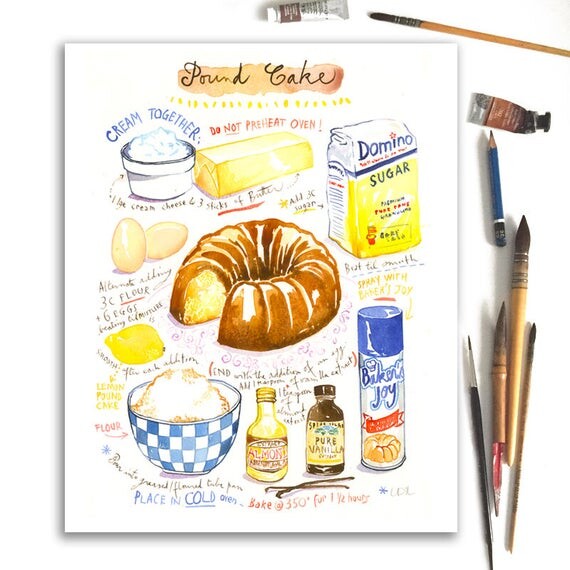 Pound Cake
CREAM TOGETHER:
DO NOT PREHEAT OVEN!
Domino
SUGAR
PREMIUM
PURE CANE
GRANULATED
cream cheese & 3 sticks of Butter
* Add 3C
sugar
Beat til smooth
Alternate adding
3C FLOUR
+ 6 EGGS
beating
SPRAY WITH
BAKER'S JOY
after each addition
(END with the addition of an egg
Add 1 teaspoon of
extract)
1 teaspoon
of
almond
extract
LEMON
POUND
CAKE
FLOUR
ALMOND
PURE
VANILLA
Baker's
Joy
*
Pour into greased/floured tube pan
PLACE IN COLD oven - Bake @ 350° for 1 1/2 hours
*